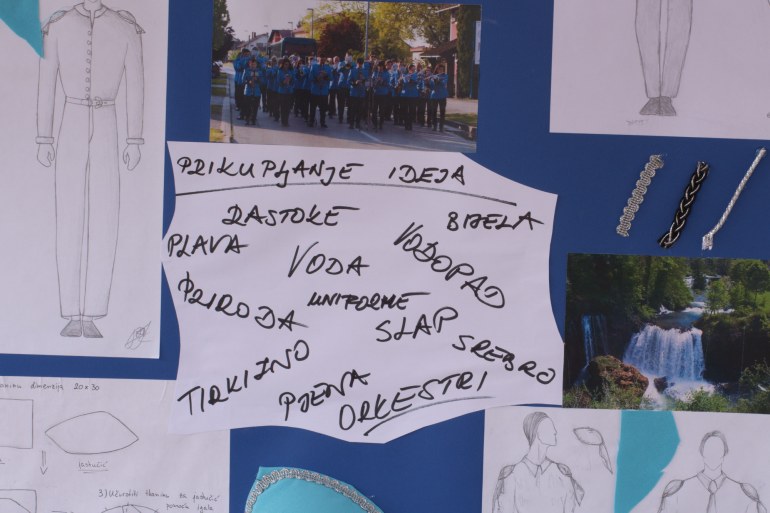 PRIKUPLJANJE IDEJA
RASTOKE
BIJELA
PLAVA
VODA
VODOPAD
PRIRODA
UNIFORME
SLAP
SREBRO
TIRKIZNO
PJENA
ORKESTRI
dimenzija 20x30
jastučić
3) Učvrstiti tkaninu za jastučić
pomoću igala